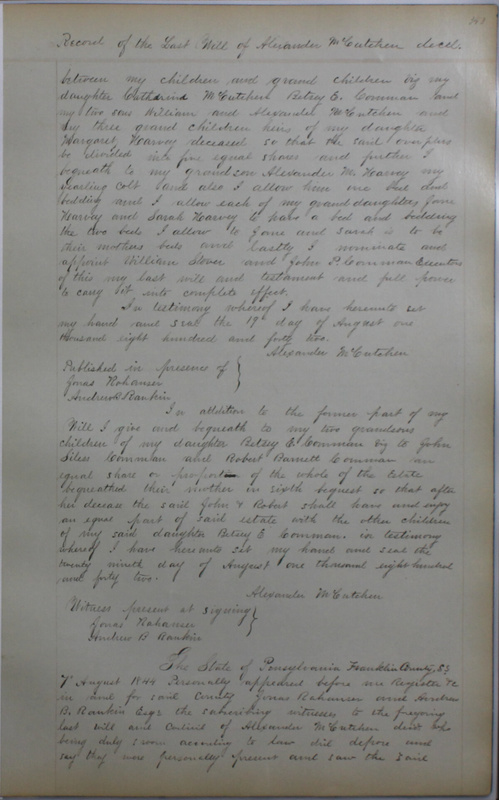 Record of the Last Will of Alexander McCutchen decd.
between my children and grand children viz my
daughter Catharine McCutchen Betsey E. Comman and
my two sons William and Alexander McCutchen and
my three grand children heirs of my daughter
Margaret Harvey deceased so that the said overplus
be divided into five equal shares and further I
bequeath to my grandson Alexander M. Harvey my
yearling colt and also I allow him one bed and
bedding and I allow each of my granddaughters Jane
Harvey and Sarah Harvey to have a bed and bedding
the two beds I allow to Jane and Sarah is to be
their mothers beds and lastly I nominate and
appoint William Stover and John P. Comman Executors
of this my last will and testament and full power
to carry it into complete effect.
In testimony whereof I have hereunto set
my hand and seal the 19th day of August one
thousand eight hundred and forty two.
Alexander McCutchen
Published in presence of
Jonas Rohanser
Andrew B Rankin
In addition to the former part of my
Will I give and bequeath to my two grandsons
children of my daughter Betsey E. Comman viz to John
Comman and Robert Barnett Comman an
equal share or proportion of the whole of the Estate
bequeathed their mother in sixth bequest so that after
her decease the said John & Robert shall have and enjoy
an equal part of said estate with the other children
of my said daughter Betsey E Comman. in testimony
whereof I have hereunto set my hand and seal the
twenty ninth day of August one thousand eight hundred
and forty two.
Alexander McCutchen
Witness present at signing
Jonas Rohanser
Andrew B Rankin
The State of Pensylvania Franklin County, SS
7 August 1844 Personally appeared before me Register &c
in and for said County Jonas Rohanser and Andrew
B. Rankin Esqr the subscribing witnesses to the foregoing
last will and Codicil of Alexander McCutchen decd who
being duly sworn according to law did depose and
say they were personally present and saw the said